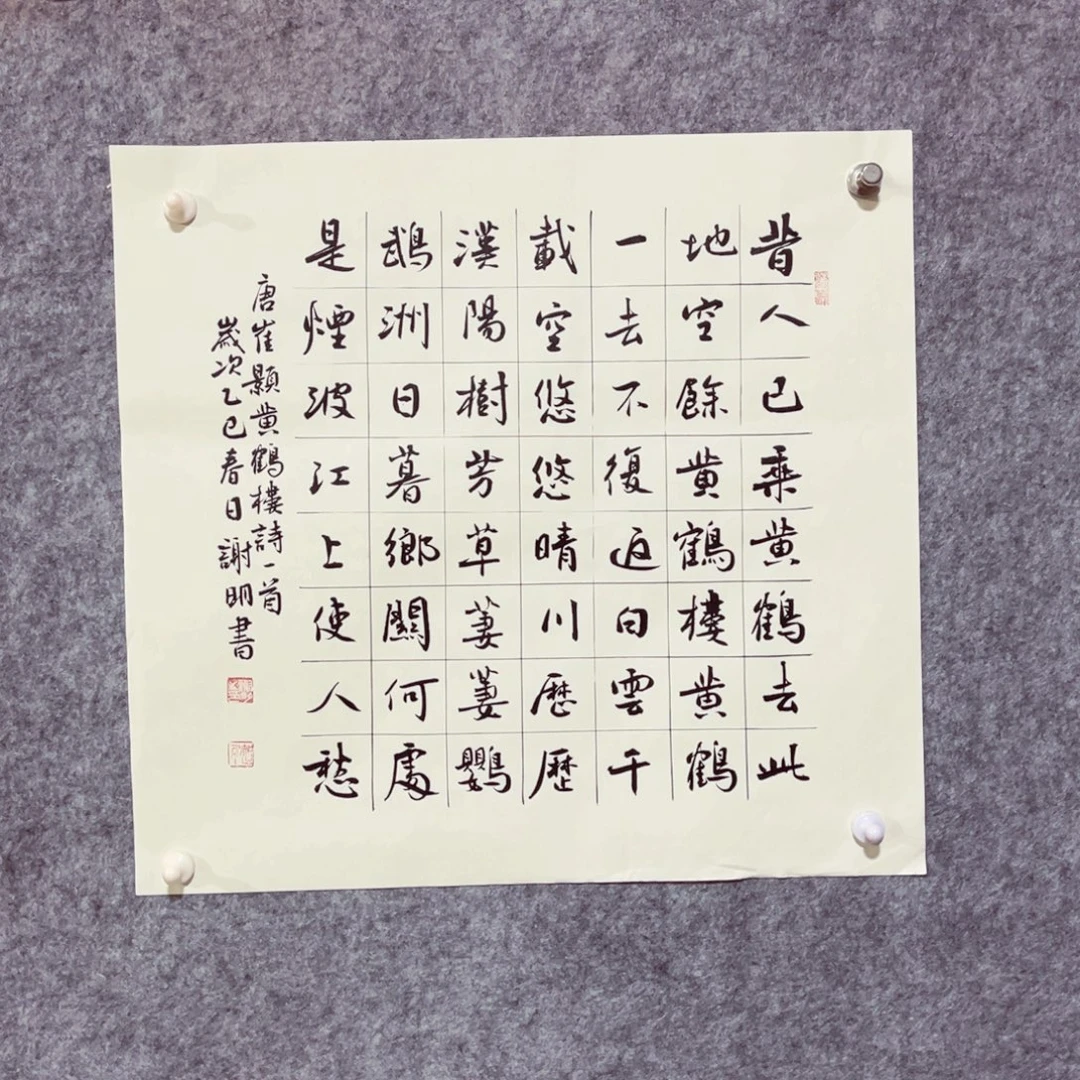 昔人已乘黄鶴去此
地空餘黄鶴樓黄鶴
一去不復返白雲千
載空悠悠晴川歷歷
漢陽樹芳草萋萋鸚
鵡洲日暮鄉關何處
是煙波江上使人愁
唐崔顥黄鶴樓詩一首
歲次乙巳春日謝明書